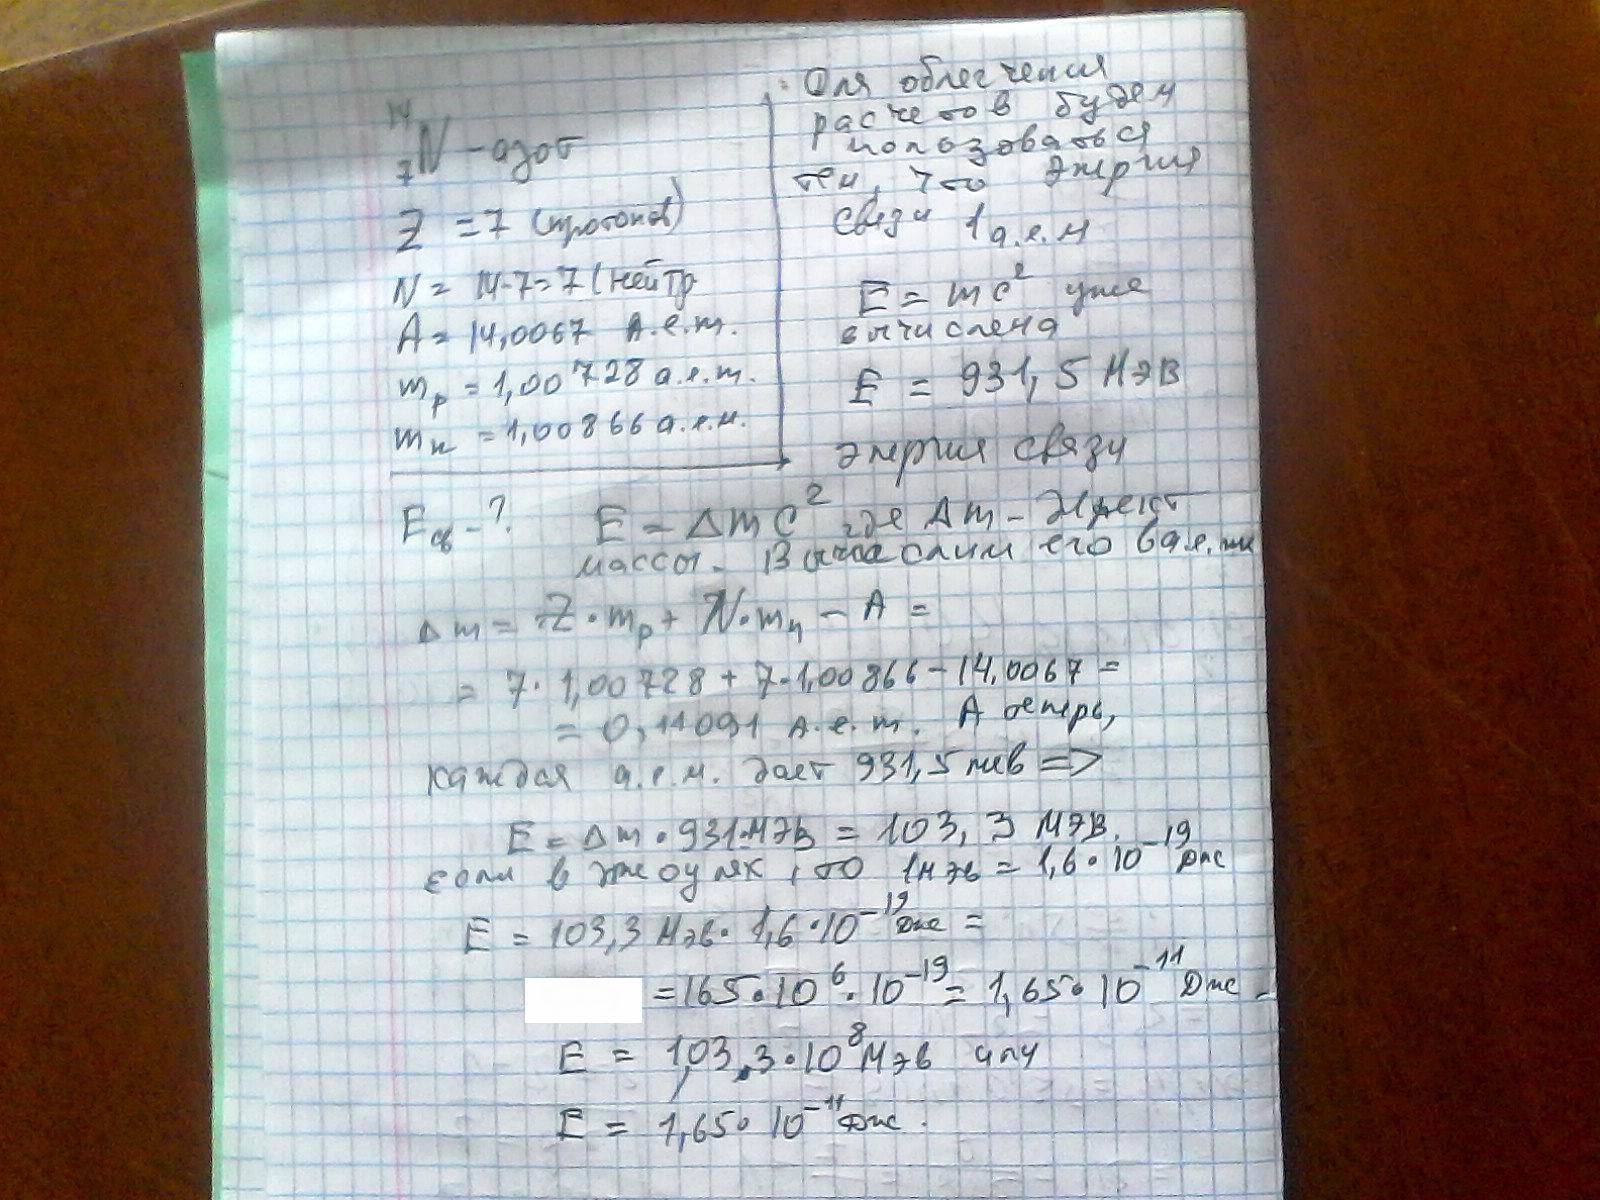 14
7N - азот
Z = 7 (протонов)
N = 14-7=7 (нейтр
A = 14,0067 А.е.т.
mp = 1,00728 а.е.т.
mн = 1,00866 а.е.м.
Для облегчения
расчетов будем
пользоваться
тем, что Энергия
связи 1 а.е.м
E = mc² уже
вычислена
E = 931,5 МЭВ
Энергия связи
Eсв - ? E = Δmc² где Δm - Дефект
массы. Вычислим его в а.е.м
Δm = Z·mp + N·mn - A =
= 7·1,00728 + 7·1,00866 - 14,0067 =
= 0,11091 А.е.т. А теперь,
каждая а.е.м. дает 931,5 мев =>
E = Δm·931·МЭВ = 103,3 МЭВ.
если в джоулях, то 1мэв = 1,6·10⁻¹⁹ Дж
E = 103,3 Мэв·1,6·10⁻¹⁹ Дж =
= 165·10⁶·10⁻¹⁹ = 1,65·10⁻¹¹ Дж -
E = 1,03,3·10⁸ Мэв или
E = 1,65·10⁻¹¹ Дж.